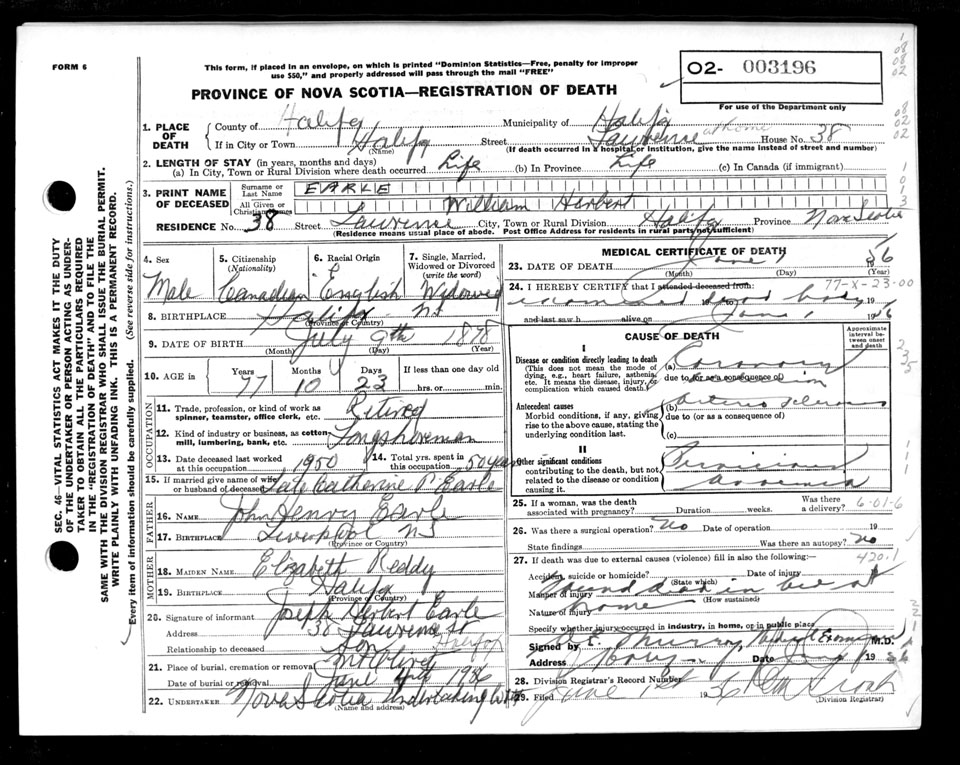 FORM 6
This form, if placed in an envelope, on which is printed "Dominion Statistics—Free, penalty for improper
use $50," and properly addressed will pass through the mail "FREE"
O2- 003196
For use of the Department only
PROVINCE OF NOVA SCOTIA—REGISTRATION OF DEATH
SEC. 46—VITAL STATISTICS ACT MAKES IT THE DUTY
OF THE UNDERTAKER OR PERSON ACTING AS UNDER-
TAKER TO OBTAIN ALL THE PARTICULARS REQUIRED
IN THE "REGISTRATION OF DEATH" AND TO FILE THE
SAME WITH THE DIVISION REGISTRAR WHO SHALL ISSUE THE BURIAL PERMIT.
WRITE PLAINLY WITH UNFADING INK. THIS IS A PERMANENT RECORD.
Every item of information should be carefully supplied. (See reverse side for instructions.)
1. PLACE OF DEATH
County of Halifax Municipality of Halifax
If in City or Town Halifax Street Lawrence at home House No. 38
(Name) (If death occurred in a hospital or institution, give the name instead of street and number)
2. LENGTH OF STAY (in years, months and days)
(a) In City, Town or Rural Division where death occurred Life (b) In Province Life (c) In Canada (if immigrant)
3. PRINT NAME OF DECEASED
Surname or Last Name EARLE
All Given or Christian Names William Herbert
RESIDENCE No. 38 Street Lawrence City, Town or Rural Division Halifax Province Nova Scotia
(Residence means usual place of abode. Post Office Address for residents in rural parts not sufficient)
4. Sex Male
5. Citizenship (Nationality) Canadian
6. Racial Origin English
7. Single, Married, Widowed or Divorced (write the word) Widowed
8. BIRTHPLACE Halifax NS
(Province or Country)
9. DATE OF BIRTH July 9th 1878
(Month) (Day) (Year)
10. AGE in Years 77 Months 10 Days 23 If less than one day old hrs. or min.
OCCUPATION
11. Trade, profession, or kind of work as spinner, teamster, office clerk, etc. Retired
12. Kind of industry or business, as cotton mill, lumbering, bank, etc. Longshoreman
13. Date deceased last worked at this occupation 1950
14. Total yrs. spent in this occupation 50 years
15. If married give name of wife or husband of deceased Late Catherine P Earle
FATHER
16. NAME John Henry Earle
17. BIRTHPLACE Liverpool NS
(Province or Country)
MOTHER
18. MAIDEN NAME Elizabeth Reddy
19. BIRTHPLACE Halifax
(Province or Country)
20. Signature of informant Joseph Herbert Earle
Address 38 Lawrence St
Relationship to deceased Son
21. Place of burial, cremation or removal Mt Olivet
Date of burial or removal June 4th 1956
22. UNDERTAKER Nova Scotia Undertaking
(Name and address)
MEDICAL CERTIFICATE OF DEATH
23. DATE OF DEATH June 1 56
(Month) (Day) (Year)
24. I HEREBY CERTIFY that I attended deceased from: 77-X-23-00
examined dead body 19
and last saw h alive on June 1 1956
CAUSE OF DEATH
Approximate interval between onset and death
I
Disease or condition directly leading to death
(This does not mean the mode of dying, e.g., heart failure, asthenia, etc. It means the disease, injury, or complication which caused death.)
(a) Coronary
due to (or as a consequence of)
Antecedent causes
Morbid conditions, if any, giving rise to the above cause, stating the underlying condition last.
(b) Arterio Sclerosis
due to (or as a consequence of)
(c)
II
Other significant conditions
contributing to the death, but not related to the disease or condition causing it.
Pernicious
Anaemia
25. If a woman, was the death associated with pregnancy? Duration weeks. Was there a delivery? 6-01-6
26. Was there a surgical operation? No Date of operation 19
State findings Was there an autopsy? No
27. If death was due to external causes (violence) fill in also the following: 420.1
Accident, suicide or homicide? Date of injury
(State which)
Manner of injury Found dead in bed at
(How sustained)
Nature of injury home
Specify whether injury occurred in industry, in home, or in public place
Signed by Murray, Medical Examiner M.D.
Address Date June 1 1956
28. Division Registrar's Record Number
29. Filed June 1st 1956
(Division Registrar)